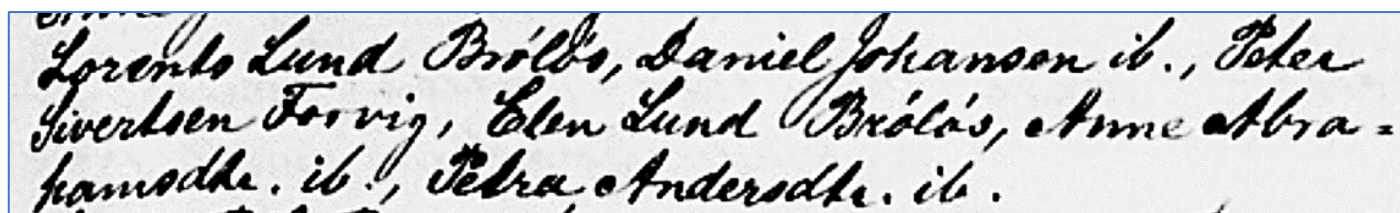 Lorents Lund Brólós, Daniel Johansen ib., Peter
Sivertsen Forvig, Elen Lund Brólós, Anne Abra=
hamsdtr. ib., Petra Andersdtr. ib.